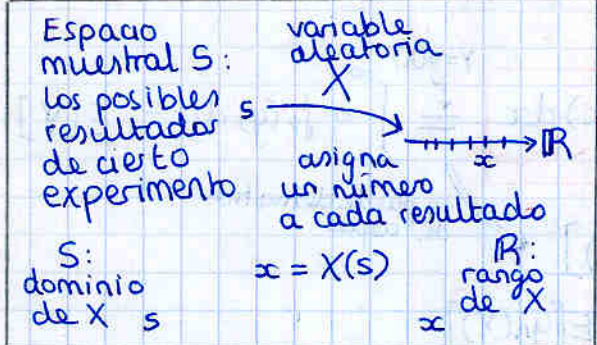 Espacio
muestral S:
los posibles
resultados
de cierto
experimento
variable
aleatoria
X
s
x
ℝ
asigna
un número
a cada resultado
S:
dominio
de X s
x = X(s)
ℝ:
rango
de X
x